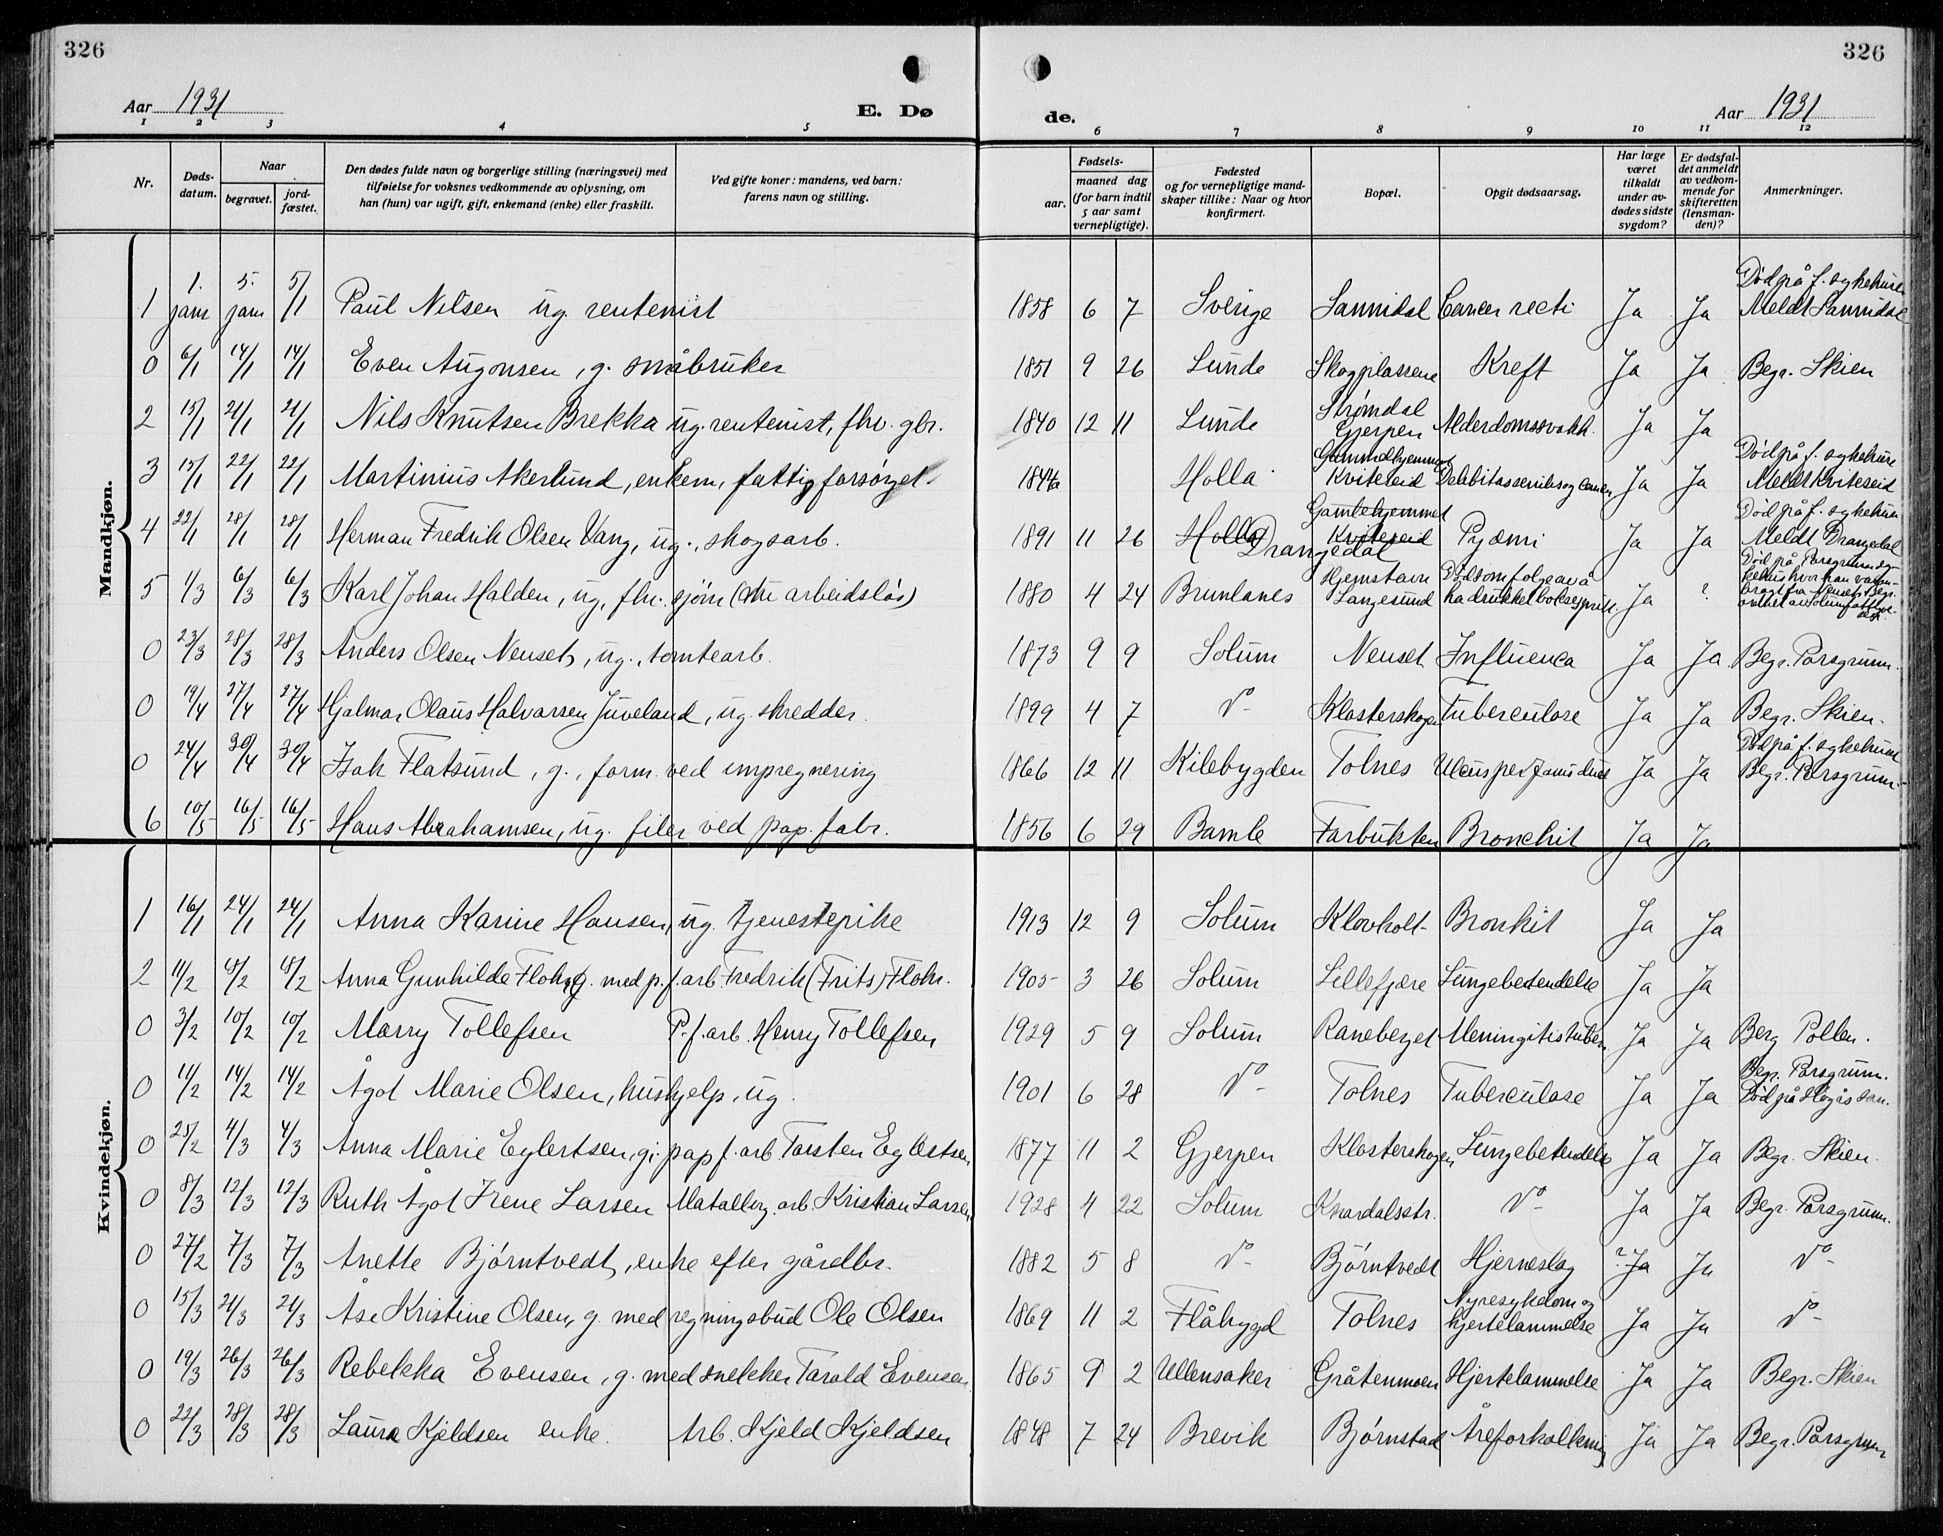 326
326
Aar 1931
E. Dø
de.
Aar 1931
1 2 3 4 5 6 7 8 9 10 11 12
Nr.
Døds-datum.
Naar
begravet.
jord-fæstet.
Den dødes fulde navn og borgerlige stilling (næringsvei) med
tilføielse for voksnes vedkommende av oplysning, om
han (hun) var ugift, gift, enkemand (enke) eller fraskilt.
Ved gifte koner: mandens, ved barn:
farens navn og stilling.
Fødsels-
aar.
maaned dag
(for barn indtil
5 aar samt
vernepligtige).
Fødested
og for vernepligtige mand-
skaper tillike: Naar og hvor
konfirmert.
Bopæl.
Opgit dødsaarsag.
Har læge
været
tilkaldt
under av-
dødes sidste
sygdom?
Er dødsfal-
det anmeldt
av vedkom-
mende for
skifteretten
(lensman-
den)?
Anmerkninger.
Mandkjøn.
1 1. jan 5. jan 5/1 Paul Nilsen ug. rentenist 1858 6 7 Sverige Sannidal Cancer recti Ja Ja Død på f. sykehuse Meldt Sannidal
0 6/1 14/1 14/1 Even Augonsen, g. småbruker 1851 9 26 Lunde Skogplassene Kreft Ja Ja Begr. Skien
2 15/1 21/1 21/1 Nils Knutsen Brekka ug. rentenist, fhv. gbr. 1840 12 11 Lunde Strømdal Gjerpen Alderdomssvakh. Ja Ja
3 15/1 22/1 22/1 Martinius Akerlund, enkem, fattigforsørget. Holla Gamlehjemmet Kviteseid Ja Ja Død på f. sykehuse Meldt Kviteseid
4 22/1 28/1 28/1 Herman Fredrik Olsen Vang, ug., skogsarb. 1891 11 26 Holla Drangedal Gamlehjemmet Kviteseid Pyæmi Ja Ja Død på f. sykehuse Meldt Drangedal
5 1/3 6/3 6/3 Karl Johan Halden, ug, fhv. sjøm (nu arbeidsløs) 1880 4 24 Brunlanes Hjemstavn Langesund Død som følge av å ha drukket Ja ? Død på Porsgrunn sykehus hvor han var
0 23/3 28/3 28/3 Anders Olsen Nenset, ug., tomtearb. 1873 9 9 Solum Nenset Influenca Ja Ja Begr. Porsgrunn.
0 19/4 27/4 27/4 Hjalmar Olaus Halvorsen Juveland, ug. skredder. 1899 4 7 do- Klosterskogen Tuberculose Ja Ja Begr. Skien.
0 24/4 30/4 30/4 Isak Flatsund, g., form. ved impregnering 1866 12 11 Kilebygden Tolnes Ulcus Ja Ja Død på f. sykehuse Begr. Porsgrunn.
6 10/5 16/5 16/5 Hans Abrahamsen, ug. filer ved pap. fabr. 1856 6 29 Bamle Farbukten Bronchit Ja Ja
Kvindekjøn.
1 16/1 24/1 24/1 Anna Karine Hansen, ug. tjenestepike 1913 12 9 Solum Klovholt- Bronkit Ja Ja
2 11/2 18/2 18/2 Anna Gunhilde Flohr, g. med p. f. arb. Fredrik (Frits) Flohr. 1905 3 26 Solum Lillefjære Lungebetendelse Ja Ja
0 3/2 10/2 10/2 Marry Tollefsen P. f. arb. Henry Tollefsen 1929 5 9 Solum Raneberget Meningitis tuber. Ja Ja Berg Pollen.
0 11/2 14/2 14/2 Ågot Marie Olsen, hushjelp, ug. 1901 6 28 do- Tolnes Tuberculose Ja Ja Begr. Porsgrunn. Død på Høgås san.
0 25/2 4/3 4/3 Anna Marie Eylertsen, g. pap f. arb. Torsten Eylertsen 1877 11 2 Gjerpen Klosterskogen Lungebetendelse Ja Ja Begr. Skien.
0 8/3 12/3 12/3 Ruth Ågot Irene Larsen Metallog. arb. Kristian Larsen 1928 4 22 Solum Knardalsstr. do- Ja Ja Begr. Porsgrunn.
0 27/2 7/3 7/3 Anette Bjørntvedt, enke efter gårdbr. 1882 5 8 do- Bjørntvedt Hjerneslag ? Ja Ja do-
0 15/3 21/3 21/3 Åse Kristine Olsen, g. med regningsbud Ole Olsen 1869 11 2 Flåbygd Tolnes Nyresykdom og hjertelammelse Ja Ja do-
0 19/3 26/3 26/3 Rebekka Evensen, g. med snekker Tarald Evensen 1865 9 2 Ullensaker Gråtenmoen Hjertelammelse Ja Ja Begr. Skien
0 22/3 28/3 28/3 Laura Kjeldsen enke. Arb. Kjeld Kjeldsen 1848 7 24 Brevik Bjørnstad Åreforkalkning Ja Ja Begr. Porsgrunn